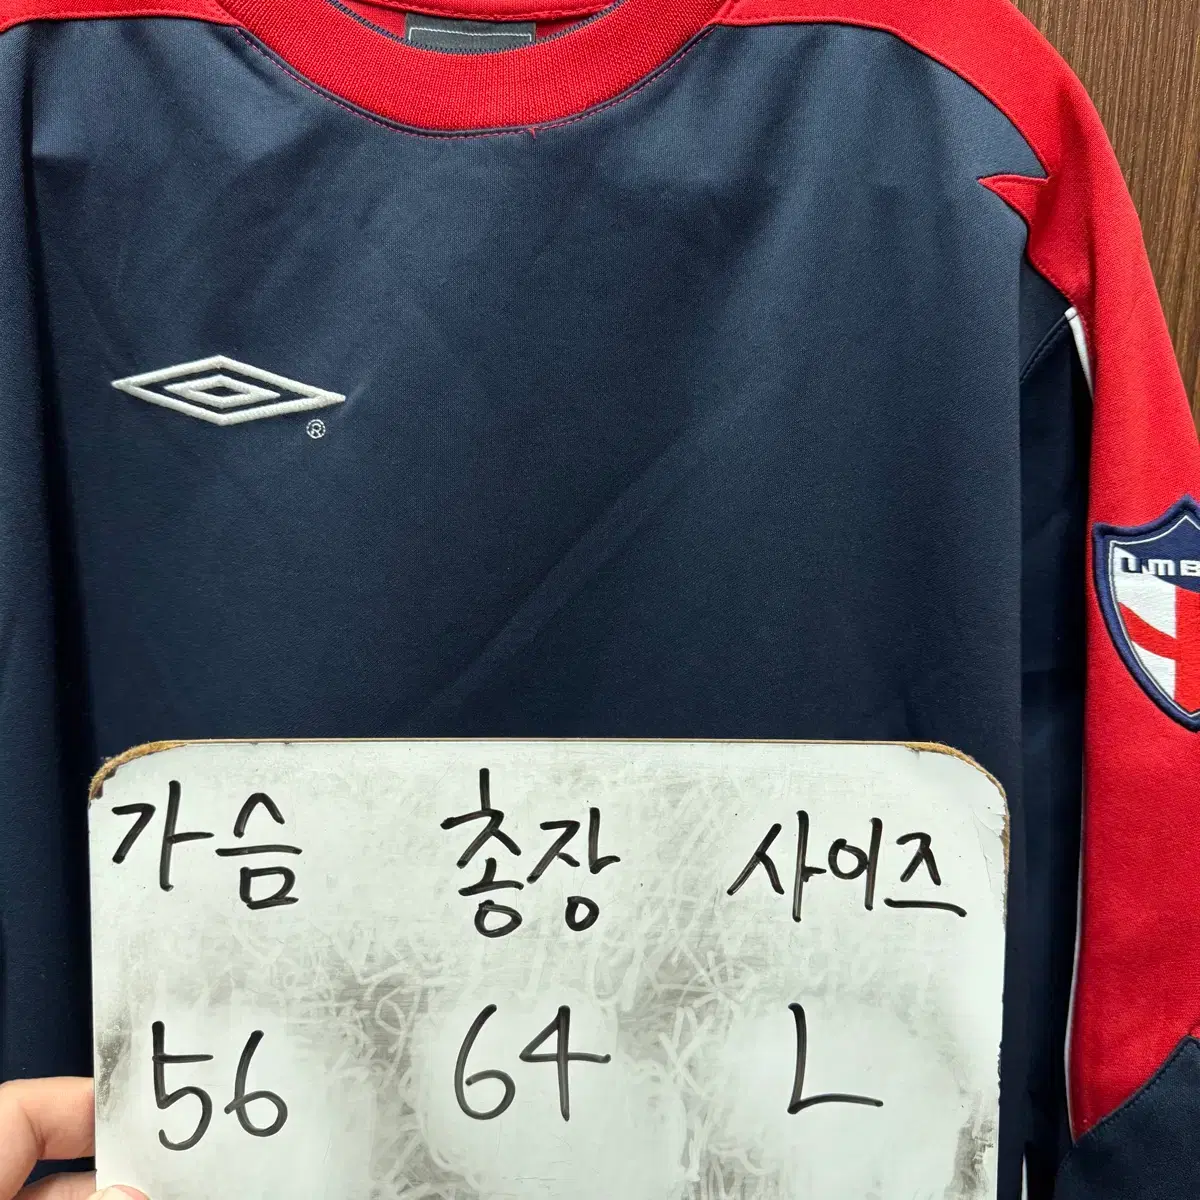 ®
UMB
가슴 총장 사이즈
56 64 L